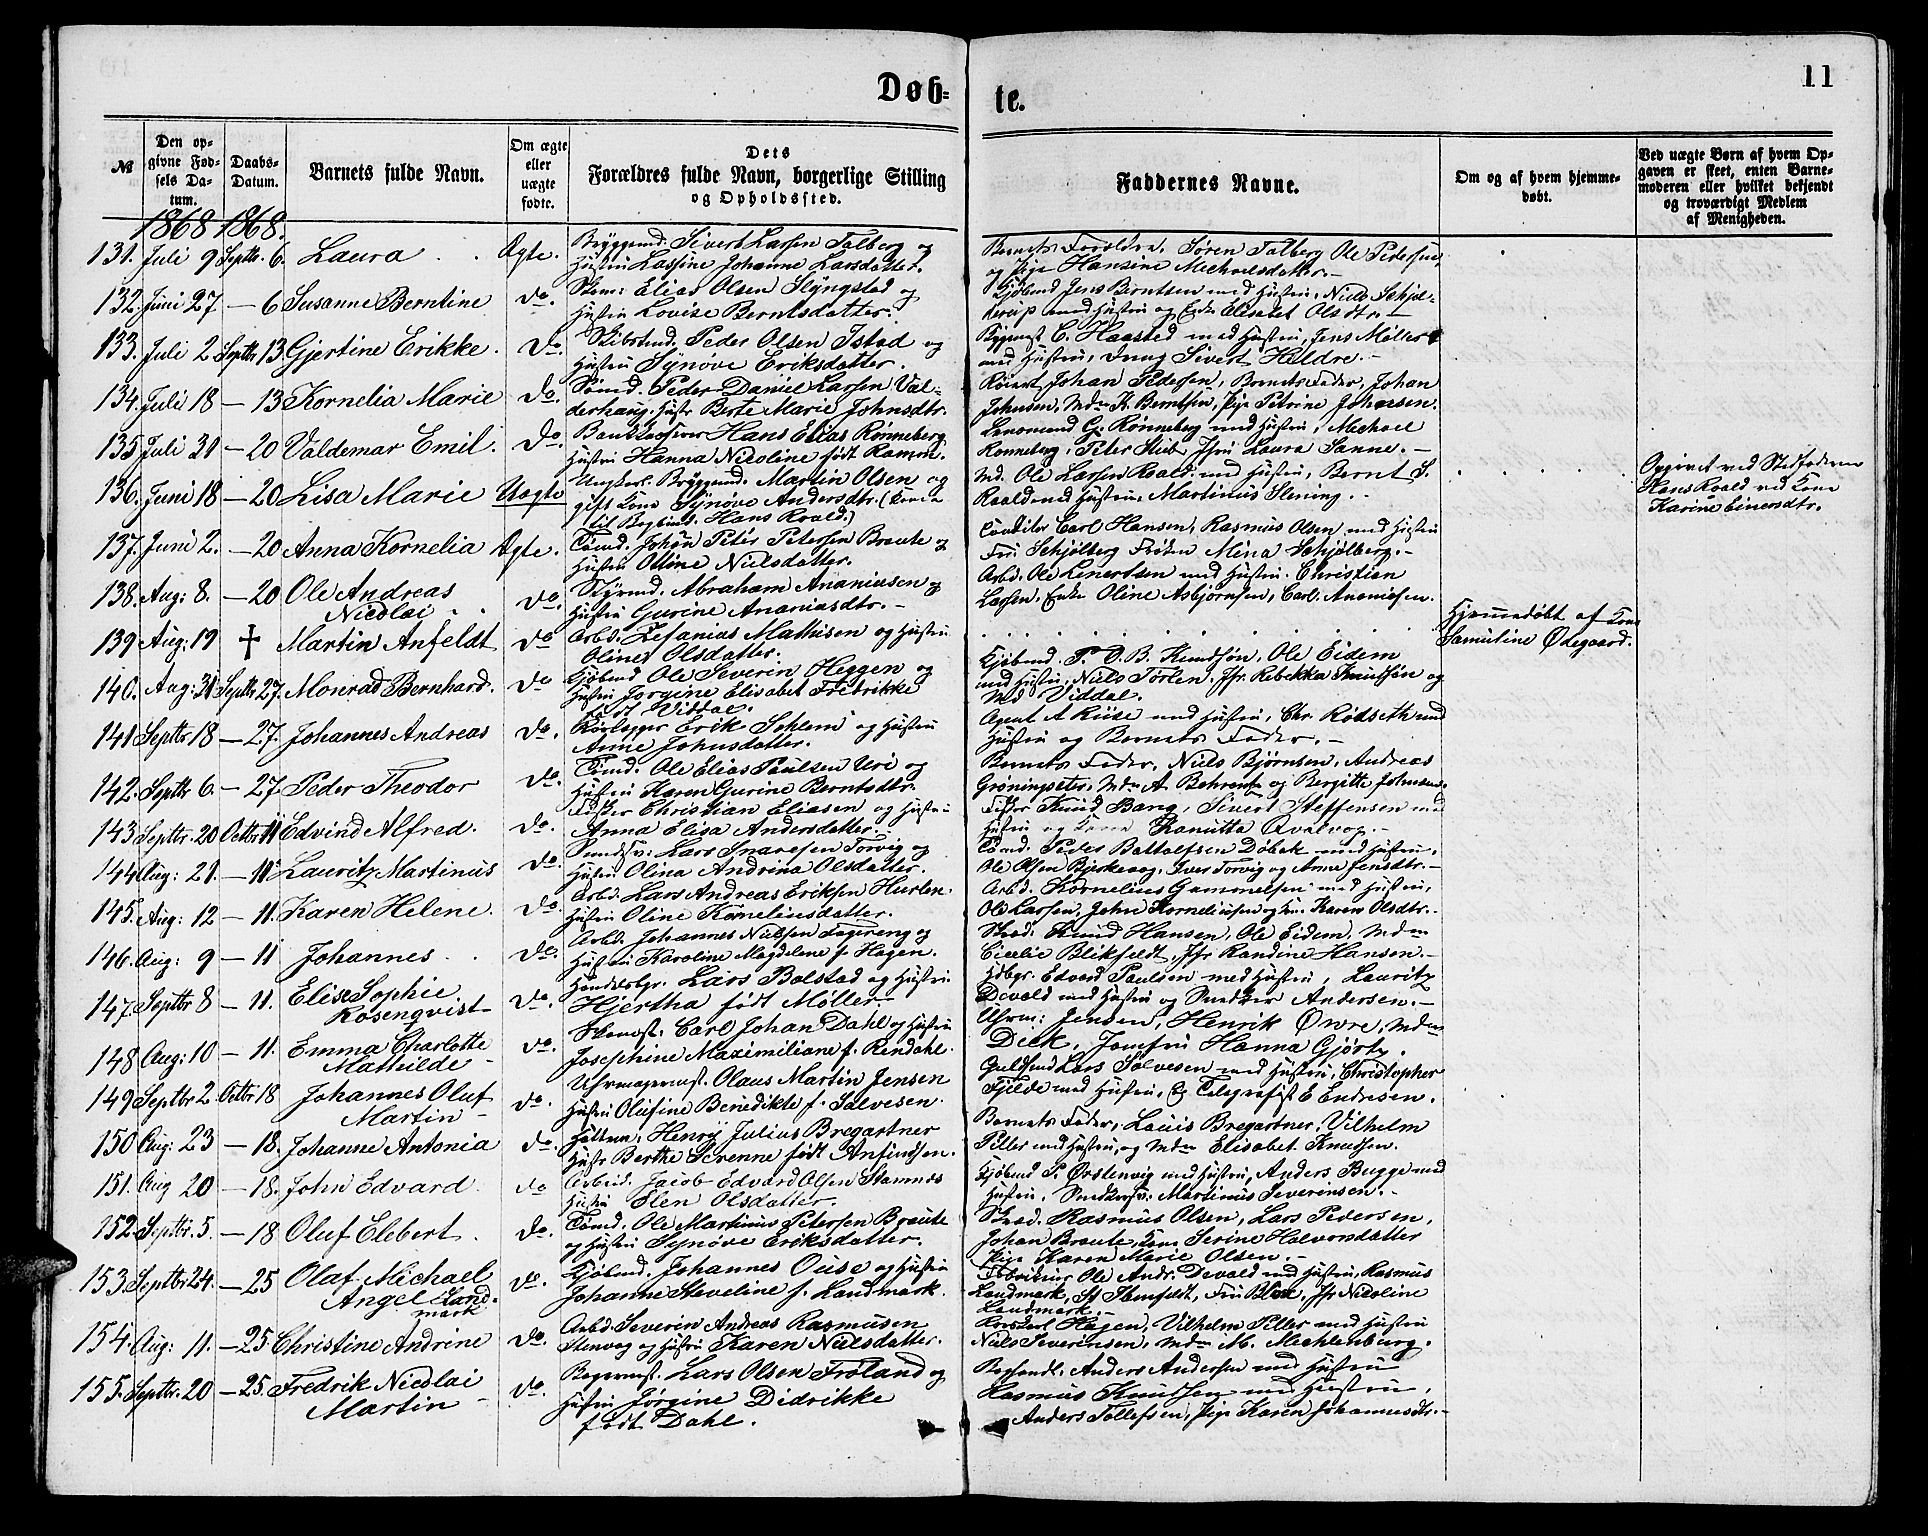 Døb-
te.
11
№
Den op-
givne Fød-
sels Da-
tum.
Daabs-
Datum.
Barnets fulde Navn.
Om ægte
eller
uægte
fødte.
Dets
Forældres fulde Navn, borgerlige Stilling
og Opholdssted.
Faddernes Navne.
Om og af hvem hjemme-
døbt.
Ved uægte Børn af hvem Op-
gaven er skeet, enten Barne-
moderen eller hvilket bekjendt
og troværdigt Medlem
af Menigheden.
1868 1868.
131. Juli 9 Septbr. 6. Laura Ægte. Bryggemd. Sivert Larsen Talberg og
Hustru Lassine Johanne Larsdatter.
Barnets Forældre. Søren Talberg Ole Pedersen,
og Pige Hansine Michaelsdatter.
132. Juni 27 — 6 Susanne Berntine do. Elias Olsen Slyngstad og
Hustru Lovise Berntsdatter.
Kjøbmd Jens Berntsen med Hustru, Niels Schjel-
derup med Hustru og Enke Eliset Olsdtr.
133. Juli 2 Septbr. 13 Gjertine Erikke. Do. Skibstmd. Peder Olsen Istad og
Hustru Synøve Eriksdatter.
C. Haasted med Hustru, Jens Møller
med Hustru, Sivert Hildre.
134. Juli 18 — 13 Kornelia Marie do. Tømd. Peder Daniel Larsen Val-
derhaug. Hustr Berte Marie Johnsdtr.
Johan Pedersen, Barnets Fader, Johan
Johnsen, Mdm K. Berntsen, Pige Petrine Johansen.
135 Juli 31 — 20 Valdemar Emil. do. Hans Elias Rønneberg
Hustru Hanna Nicoline født Ramm.
C. Rønneberg med Hustru, Michael
Rønneberg, Peter Stub, Jfru Laura Sanne.
136. Juni 18 — 20 Lisa Marie Uægte Ungkarl. Bryggemd. Martin Olsen og
gift Kone Synøve Andersdtr. (Kone
til Bogbind. Hans Roald.)
Md. Ole Larsen Roald med Hustru, Bernt S.
Roald med Hustru, Martinus Slening.
Opgivet ved Stedfaderen
Hans Roald ved Kone
Karine Einersdtr.
137. Juni 2. — 20 Anna Kornelia Ægte. Tømd. Johan Peter Petersen Braute og
Hustru Oline Nielsdatter.
Conditor Carl Hansen, Rasmus Olsen med Hustru
Fru Schjølberg Frøken Mina Schjølberg.
138. Aug: 8. — 20 Ole Andreas
Nicolai do. Styrmd. Abraham Ananiasen og
Hustru Gurine Ananiasdtr.
Arbd. Ole Lenertsen med Hustru. Christian
Larsen, Enke Oline Asbjørnsen, Carl Ananiesen.
139 Aug: 19 † Martin Anfeldt do Arbd. Zefanias Mathisen og Hustru
Oline Olsdatter.
Hjemmedøbt af Kone
Samuline Ødegaard.
140. Aug: 31 Septbr 27. Monrad Bernhard. do Kjøbmd Ole Severin Heggen og
Hustru Jørgine Elisabet Fredrikke
født Viddal.
Kjøbmd. P. O. B. Knudsøn, Ole Eidem
med Hustru, Niels Torlen. Jfr. Rebekka Knudsøn og
Md Viddal.
141 Septbr 18 — 27. Johannes Andreas do. Erik Sohlem og Hustru
Anne Johnsdatter.
Agent A Riise med Hustru, Chr. Rødseth med
Hustru og Barnets Fader.
142. Septbr 6. — 27. Peder Theodor do. Tømd. Ole Elias Paulsen Uri og
Hustru Karen Gurine Berntsdtr.
Barnets Fader, Niels Bjørnsen, Andreas
Grøningseter, Mdm A. Behrent og Bergitte Johnsen.
143 Septbr. 20 Octbr 11 Edvind Alfred. do. Christian Eliasen og Hustru
Anna Elisa Andersdatter.
Fisker Knud Bang, Sivert Steffensen med
Hustru og Kone Ranutta Qvalvog.
144 Aug: 21. — 11. Lauritz Martinus do. Lars Snaresen Torvig og
Hustru Olina Andrina Olsdatter.
Tømd. Peder Battolfsen Døbak med Hustru,
Ole Olsen Bjerkevog, Iver Torvig og Anne Jensdtr.
145. Aug: 12 — 11. Karen Helene. do. Arbd. Lars Andreas Eriksen Hurlen.
Hustru Oline Korneliusdatter.
Arbd. Kornelius Gammelsen med Hustru,
Ole Larsen, John Korneliusen og Karen Olsdtr.
146. Aug: 9 — 11 Johannes. do. Arbd. Johannes Nielsen Fagereng og
Hustru Karoline Magdelene f. Hagen.
Knud Hansen, Ole Eidem, Mdm
Cicelie Blikfeldt, Jfr Randine Hansen.
147. Septbr 8 — 11. Elise Sophie
Rosenqvist do. Handelsbgr. Lars Bolstad og Hustru
Hjertha født Møller.
Hdbgr. Edvard Paulsen med Hustru, Lauritz
Devold med Hustru og Andersen.
148 Aug: 10 — 11. Emma Charlotte
Mathilde do. Carl Johan Dahl og Hustru
Josephine Maximiliane f. Rendahl.
Uhrm: Jensen, Henrik Øwre, Mdm
Dick, Jomfru Hanna Gjørtz.
149 Septbr 2. Octbr 18 Johannes Oluf
Martin do. Uhrmagermst. Olaus Martin Jensen
Hustru Olufine Benedikte f. Salvesen.
Guldsmd Lars Solvesen med Hustru, Christopher
Fjelde med Hustru, og Telegrafist E Endresen.
150 Aug: 23 — 18. Johanne Antonia do. Henrij Julius Bregartner
Hustr Berthe Serenne født Anfindsen.
Barnets Fader, Louis Bregartner, Vilhelm
Piller med Hustru, og Mdm Elisabet Knudsen.
151. Aug 20 — 18. John Edvard. do Arbeid. Jacob Edvard Olsen Stamnes
Hustru Elen Olsdatter.
Kjøbmd P. Ørstenvig med Hustru, Anders Bugge med
Hustru. Martinus Severensen.
152. Septbr. 5. — 18 Oluf Elebert. do. Tømd. Ole Martinus Petersen Braute
og Hustru Synøve Eriksdatter.
Rasmus Olsen, Lars Pedersen,
Johan Braute, Kone Serine Halvorsdatter
Pige Karen Marie Olsen.
153. Septbr. 24. — 25 Olaf Michael
Angel Land-
mark do. Kjøbmd. Johannes Ouse og Hustru
Johanne Steveline f. Landmark.
Fabrikeier Ole Andr. Devold med Hustru, Rasmus
Landmark, Fru Jfr Nicoline
Landmark.
154. Aug: 11. — 25. Christine Andrine do. Arbd. Severin Andreas Rasmusen
Stenvog og Hustru Karen Nielsdatter.
Hagen, Vilhelm Piller med Hustru
Niels Severensen, Mdm M. Mechlenburg.
155. Septbr. 20 — 25. Fredrik Nicolai
Martin do. Bagermst. Lars Olsen Frøland og
Hustru Jørgine Didrikke
født Dahl.
Anders Andersen med Hustru
Rasmus Knudsen med Hustru,
Anders Tollefsen, Pige Karen Johannesdtr.